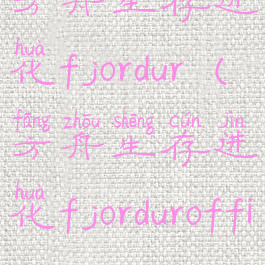 方舟生存进
huà
化fjordur（
fāng zhōu shēng cún jìn
方舟生存进
huà
化fjorduroffi